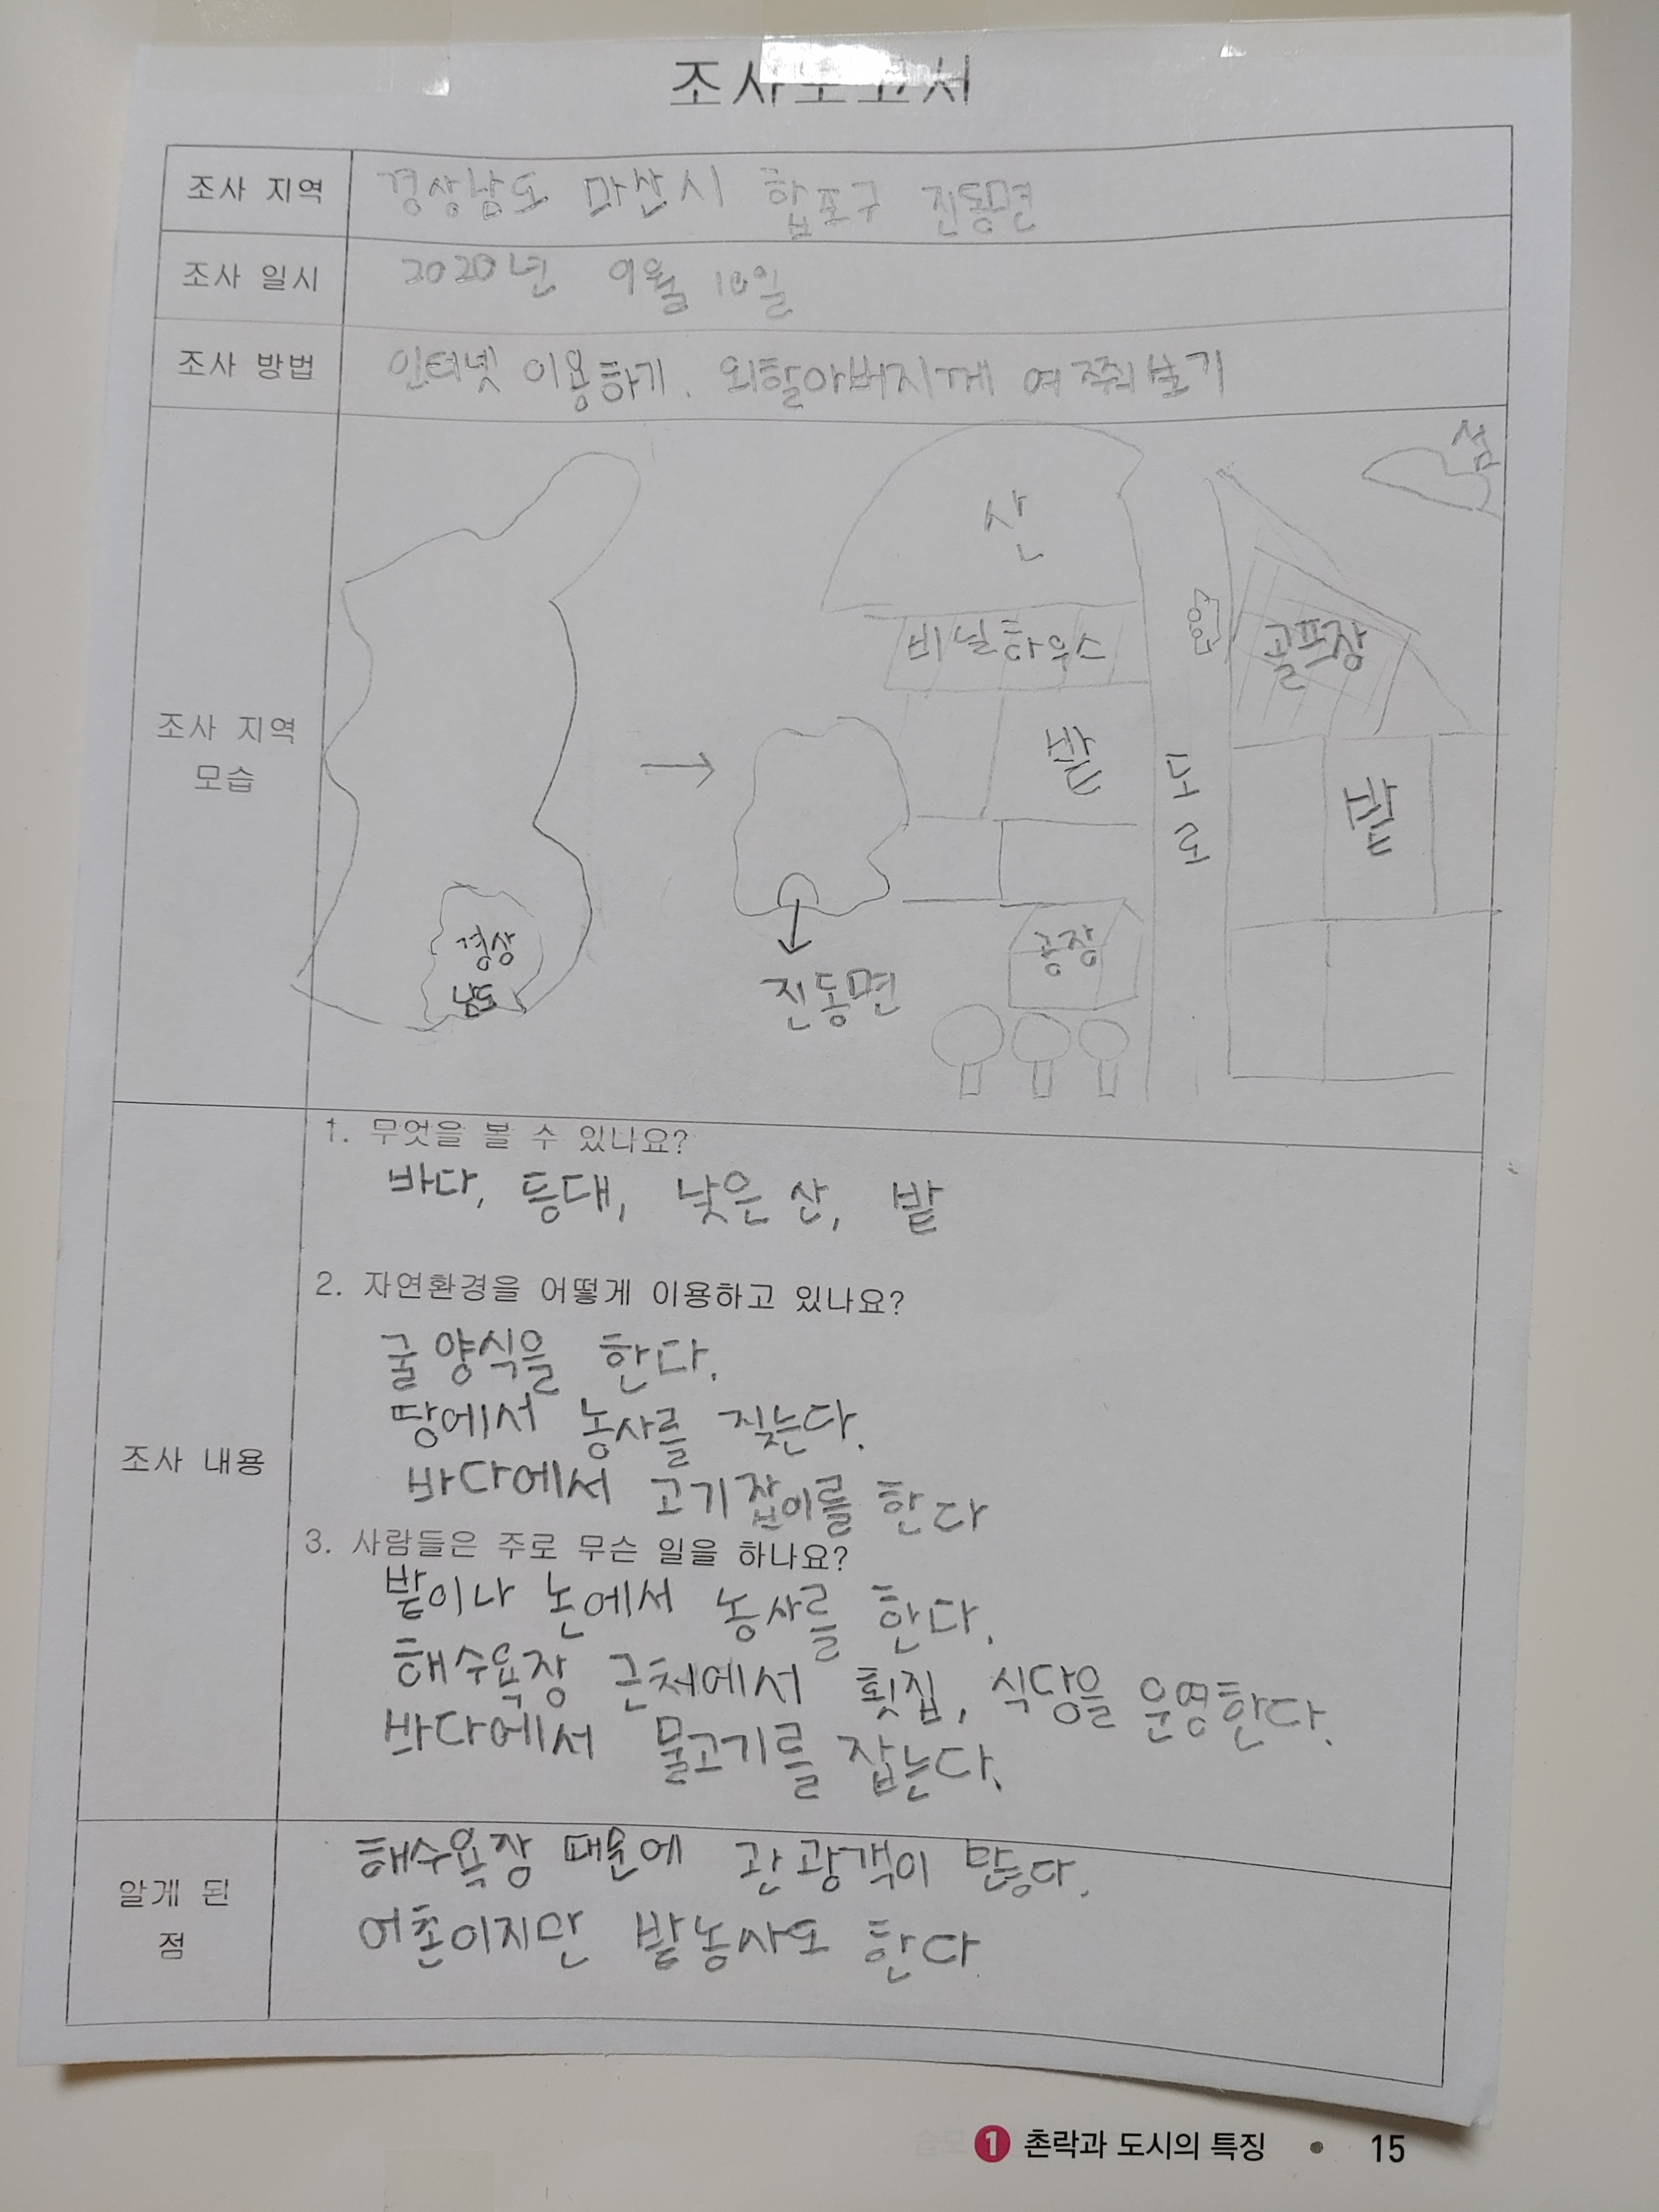 조사보고서
조사 지역
경상남도 마산시 합포구 진동면
조사 일시
2020년 9월 10일
조사 방법
인터넷 이용하기. 외할아버지께 여쭤보기
조사 지역
모습
경상
남도
진동면
산
비닐하우스
밭
공장
도로
섬
골프장
밭
조사 내용
1. 무엇을 볼 수 있나요?
바다, 등대, 낮은 산, 밭
2. 자연환경을 어떻게 이용하고 있나요?
굴 양식을 한다.
땅에서 농사를 짖는다.
바다에서 고기잡이를 한다
3. 사람들은 주로 무슨 일을 하나요?
밭이나 논에서 농사를 한다.
해수욕장 근처에서 횟집, 식당을 운영한다.
바다에서 물고기를 잡는다.
알게 된
점
해수욕장 때문에 관광객이 많다.
어촌이지만 밭농사도 한다.
1 촌락과 도시의 특징 • 15